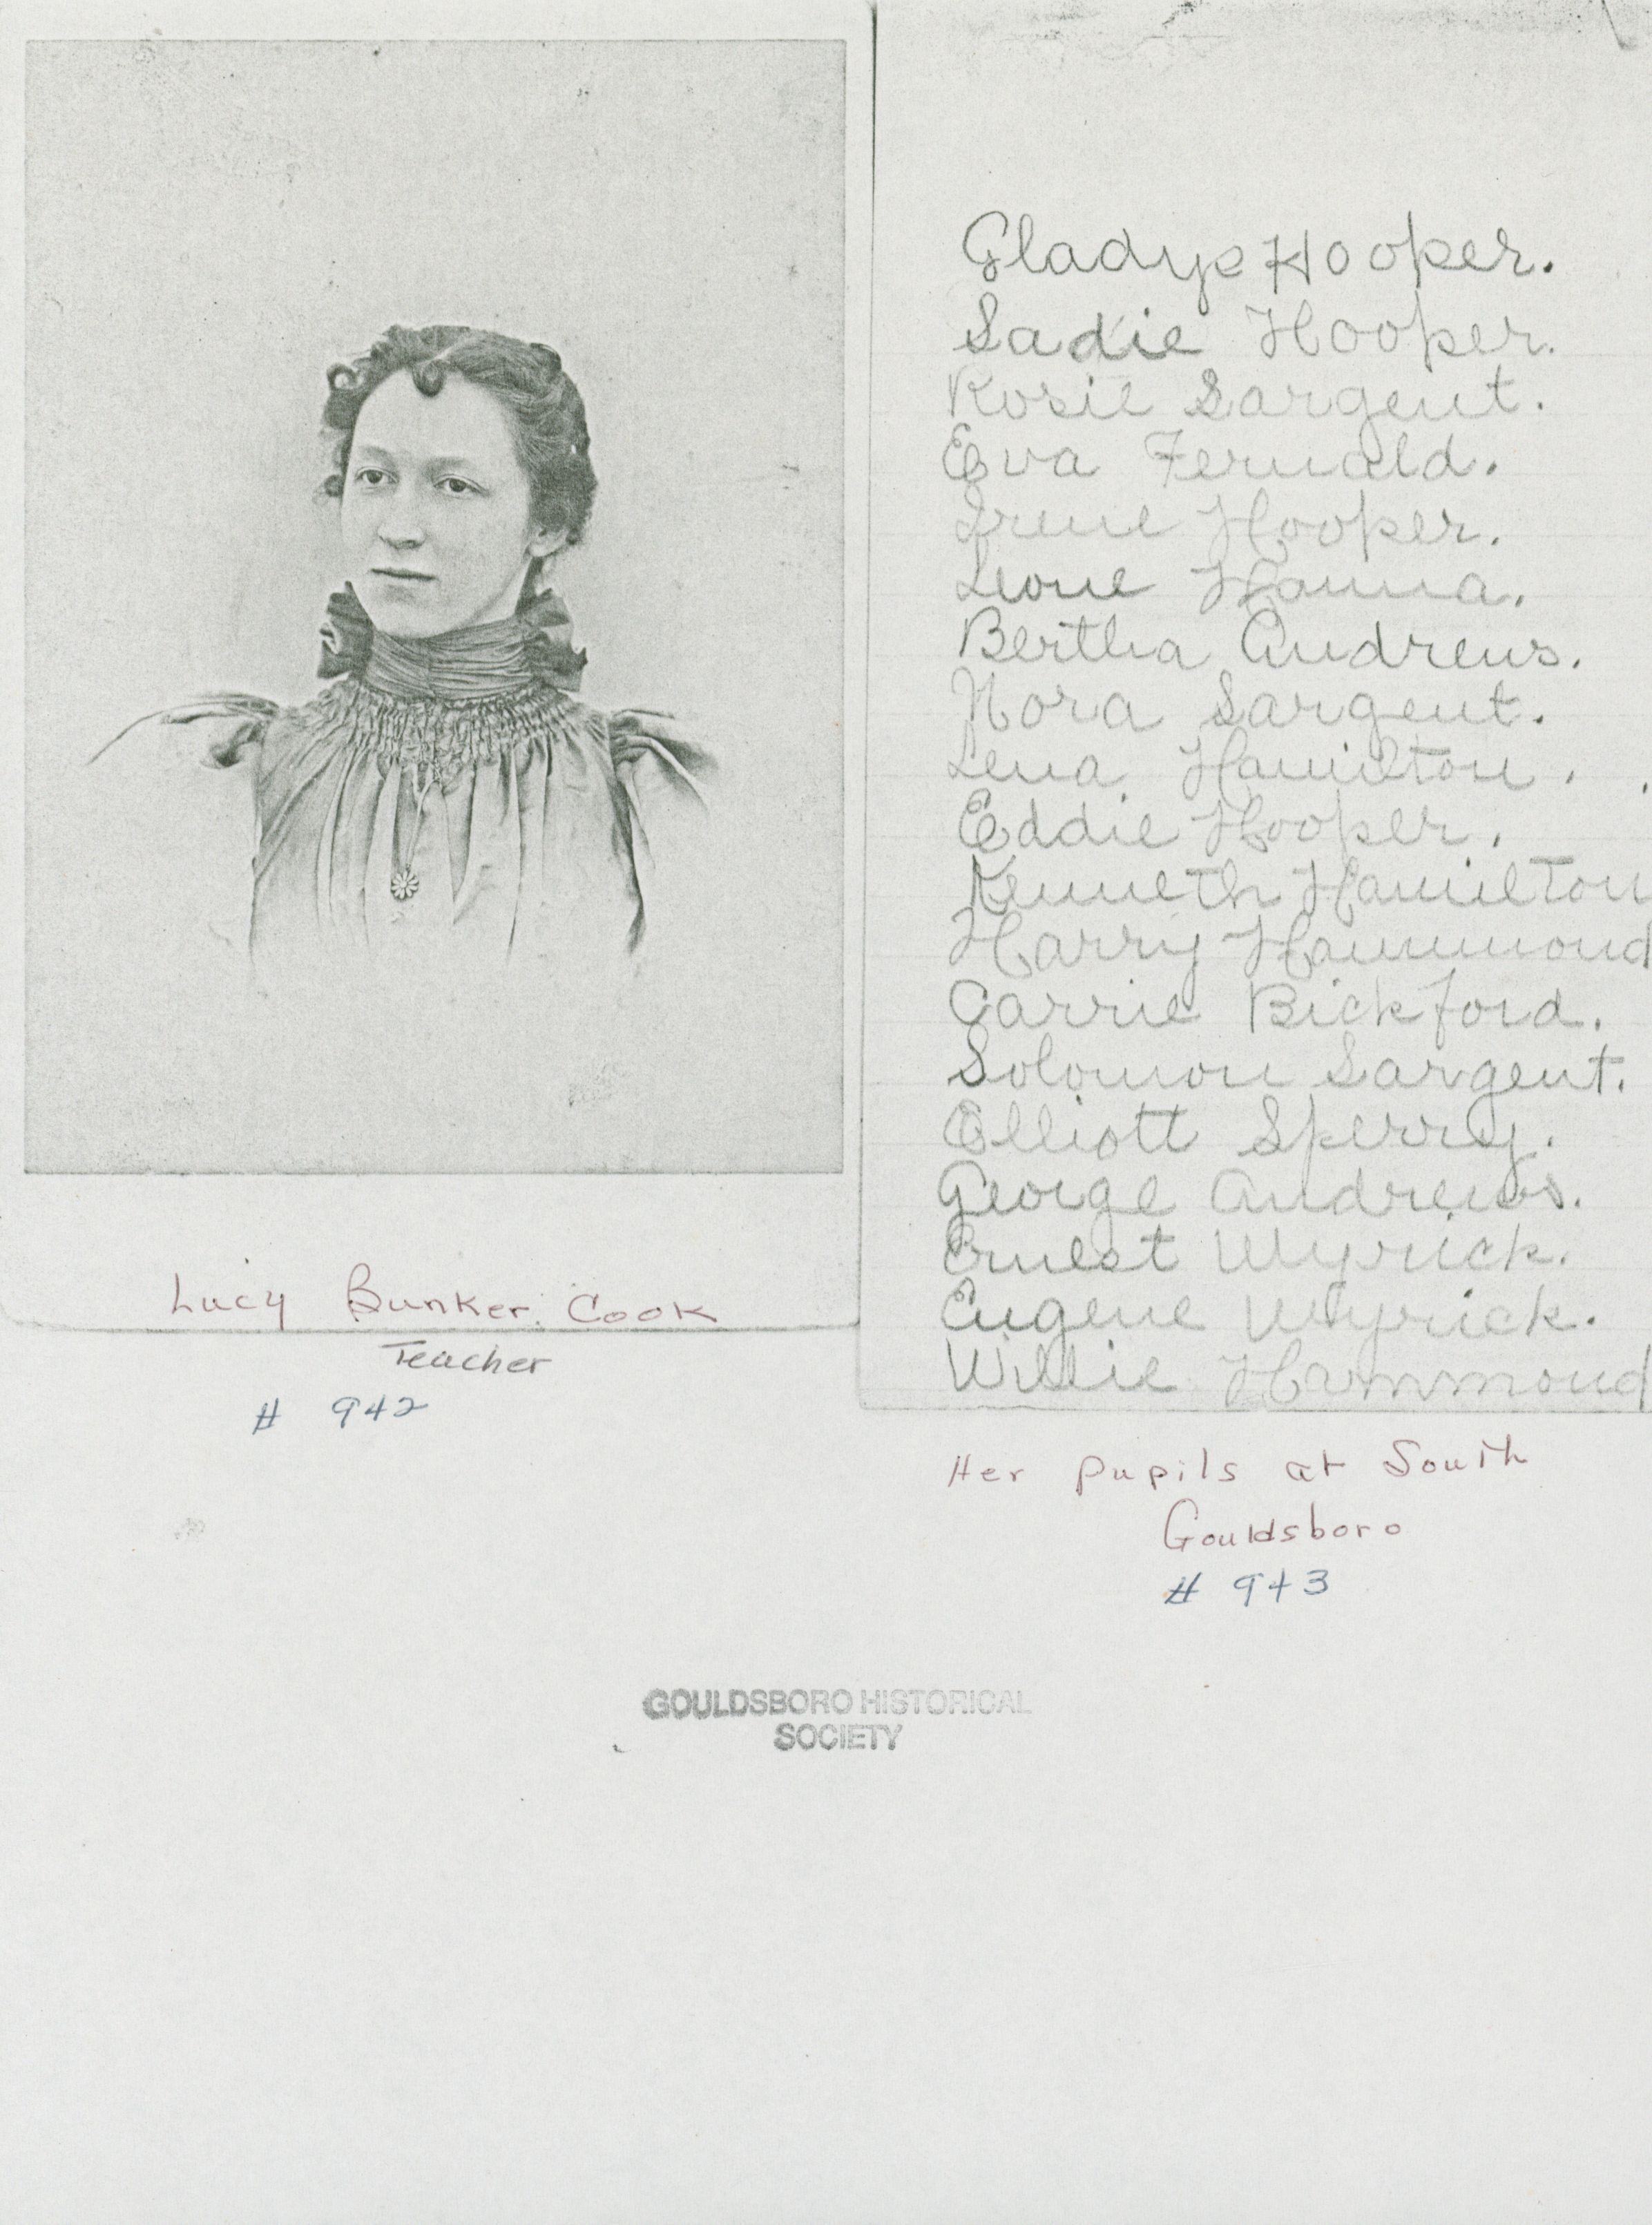 Gladys Hooper.
Sadie Hooper.
Rosie Sargent.
Eva Fernald.
Irene Hooper.
Leone Hanna.
Bertha Andrews.
Nora Sargent.
Lena Hamilton.
Eddie Hooper.
Kenneth Hamilton
Harry Hammond
Carrie Bickford.
Solomon Sargent.
Elliott Sperry.
George Andrews.
Ernest Wyrick.
Eugene Wyrick.
Willie Hammond
Lucy Bunker Cook
Teacher
# 942
Her pupils at South
Gouldsboro
# 943
GOULDSBORO HISTORICAL
SOCIETY